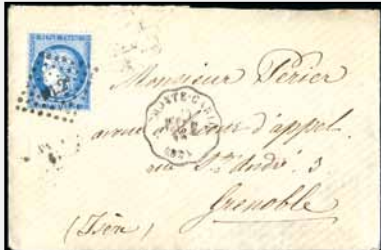 MONTE-CARLO
Monsieur Périer
avoué à la Cour d'appel
rue St André 3
Grenoble
(Isère)